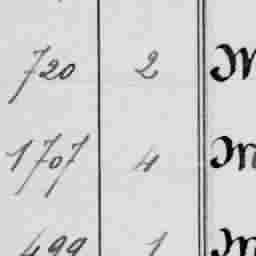 720 2 M
1707 4 M
499 1 M